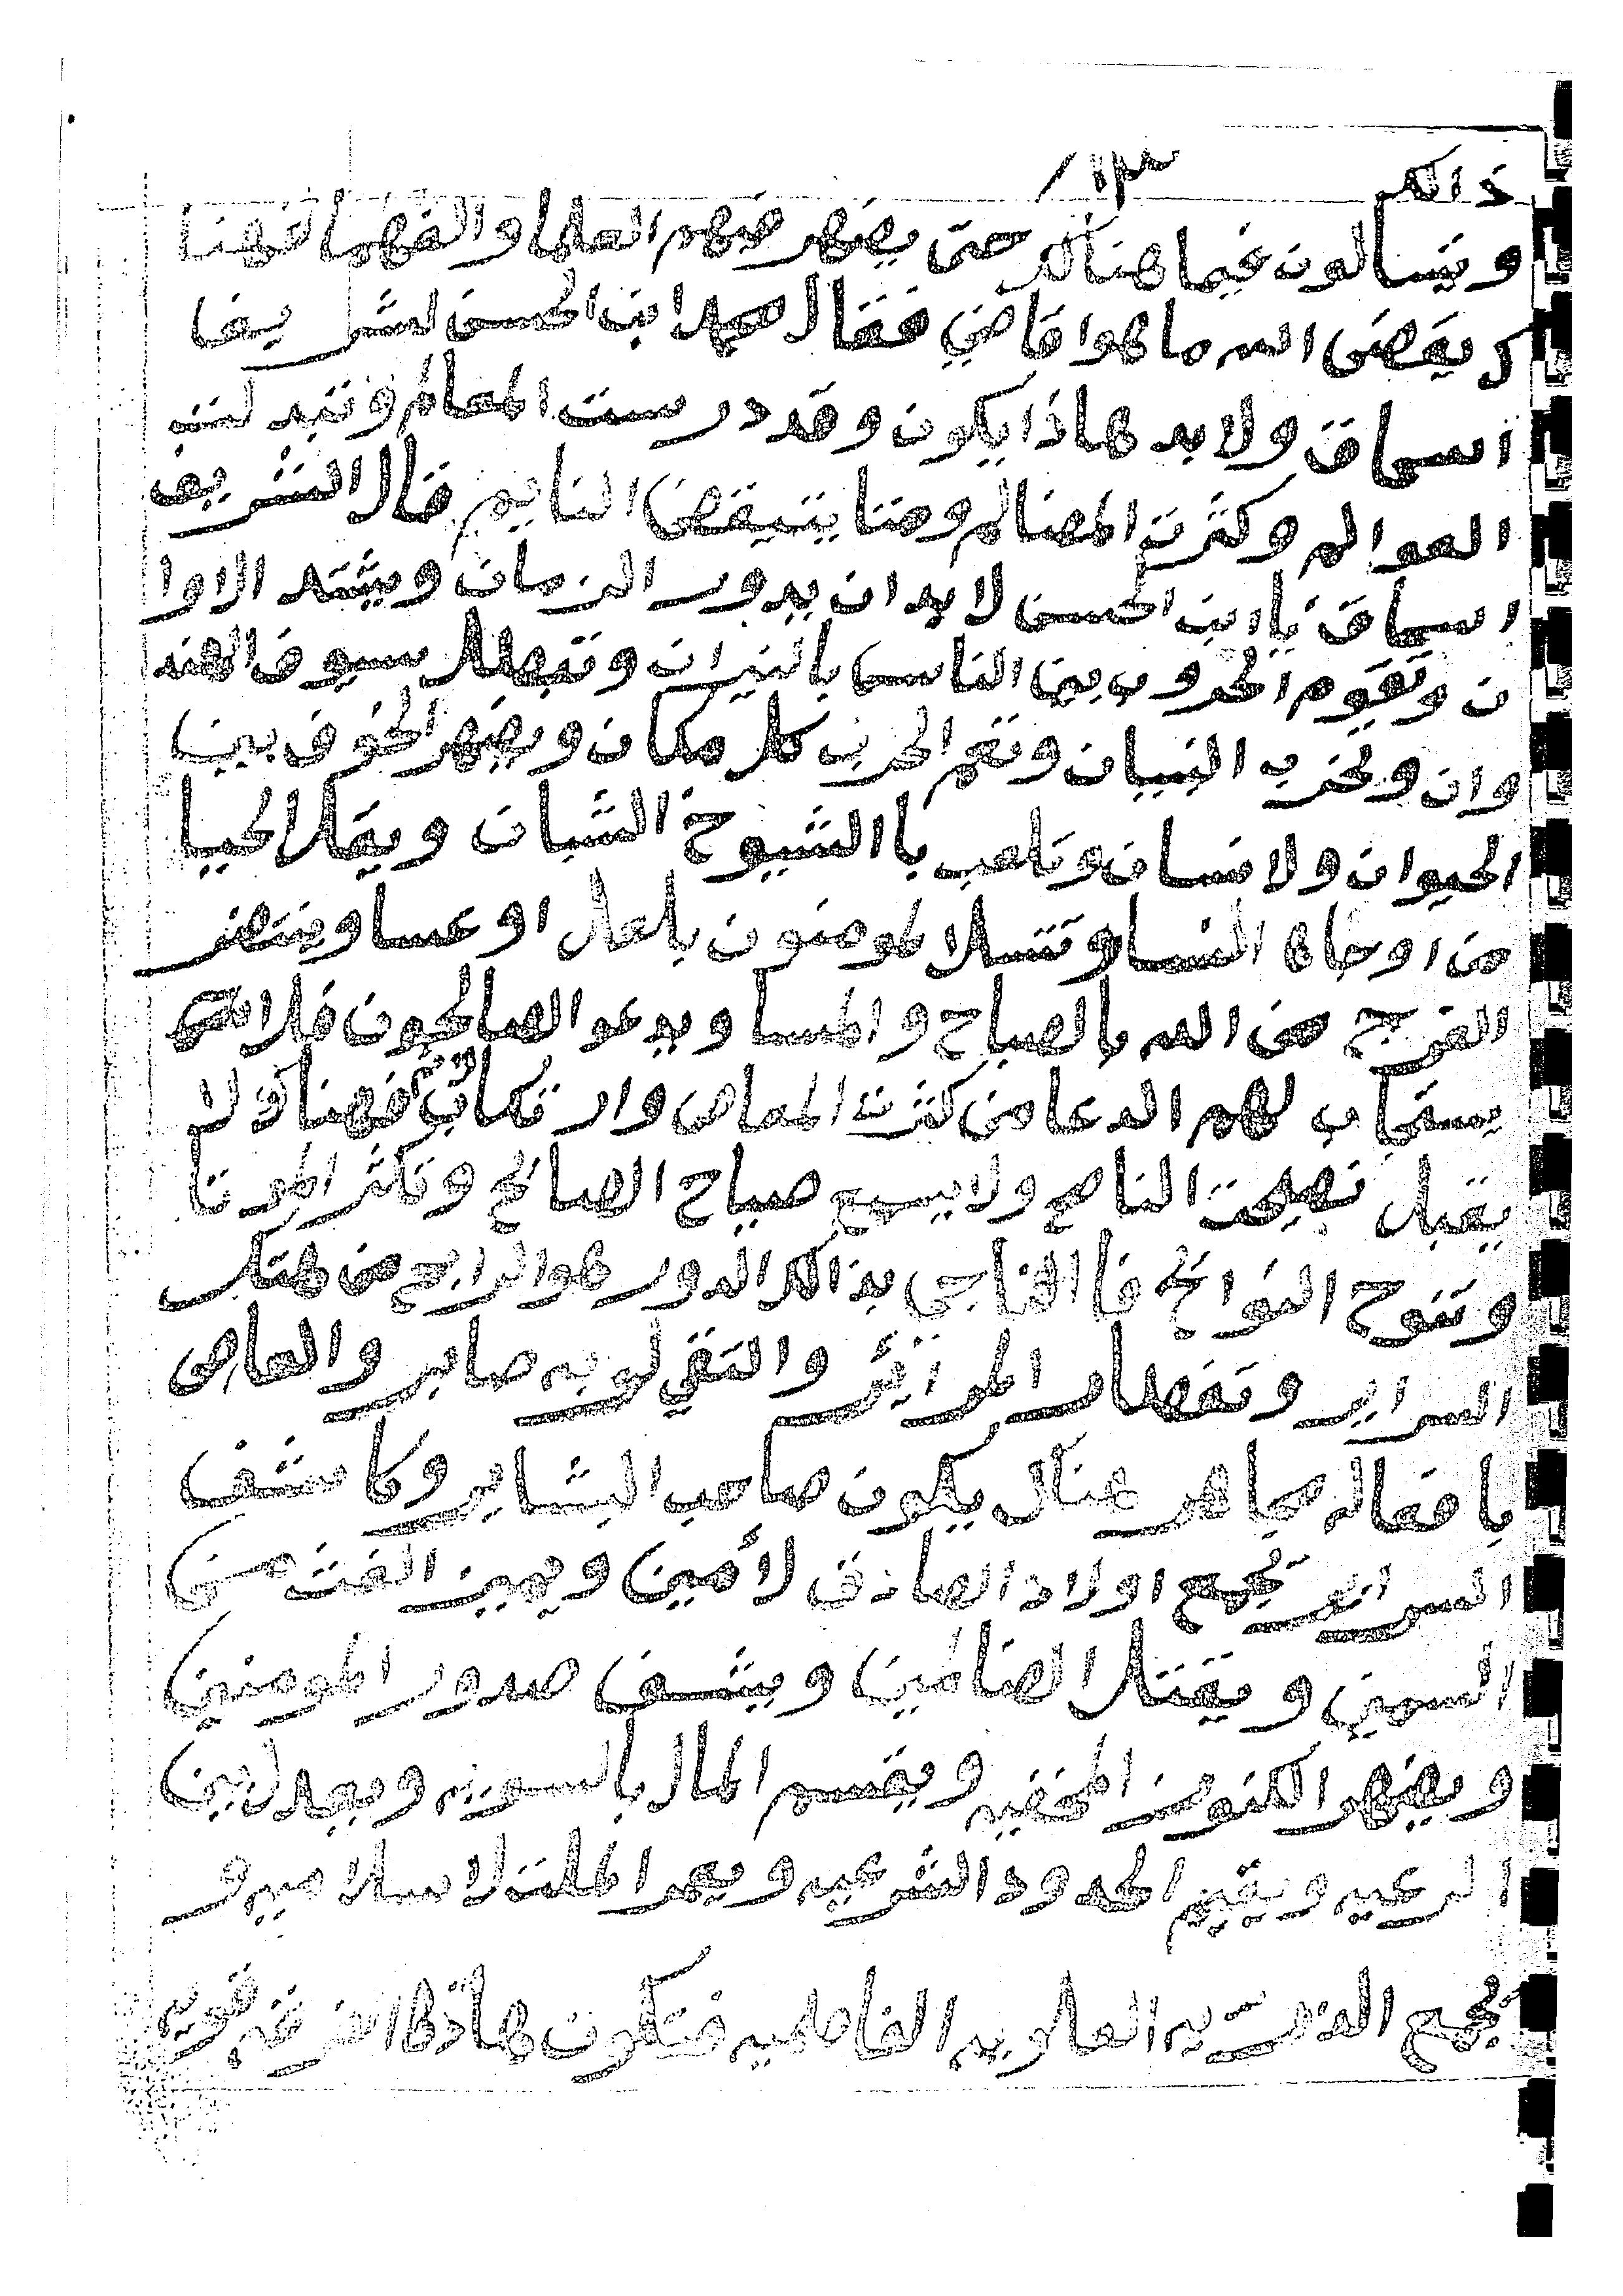 ذالك ١٣/
ويتسالون فيما هنالك حتى يضهر ضهم العلما والفهما فهنا
ك يقضى الله ما هوا قاضي فقال محمد ابن الحسن لشر يف
اسحاق ولا بد هاذا يكون وقد درست المعالم وتبد لت
العوالم وكثرت المضالم ومتا يتيقض النايم قال الشريف
اسحاق يا ابن الحسن لا بد ان يدور الزمان ويشتد الاوا
ن وتقوم الحروب بين الناس بالنيران وتبطل سيوف الهند
وان وتخرب البنيان وتعم الحرب كل مكان ويضهر الخوف بين
الحيوان ولانسان وتلعب باالشيوخ الشبان ويقل الحيا
من اوجاه النسا وتتسلا لمومنون بلعل او عسا وينتضر
الفرج من الله بالصباح والمسا ويدعو الصالحون فلا
يستجاب لهم الدعا من كثرت المعاص وار تكاب فهناك لا
يقبل نصيحت الناصح ولا يسمع صياح الصالح وتكثر
وتنوح النوائح فا الناجى بذالك الدور هوالرابح من هتك
السراير وتفطار المرائر والتقي لربه صابر والعاصى
با فعاله مجاهر هنال يكون صاحب البشاير وكا شف
السراير تجمع اولاد الصادق لأمين ويميز الغث من
السمين ويقتل الضالمين ويشف صدور المومنين
ويضهر الكنوز المخفيه ويقسم المال بالسويه ويعدل بين
الرعيه ويقيم الحدود الشرعيه ويعمر الملت لاسلاميه و
تجمع الذريه العلويه الفاطميه فتكون هاذا الفرقه قويه